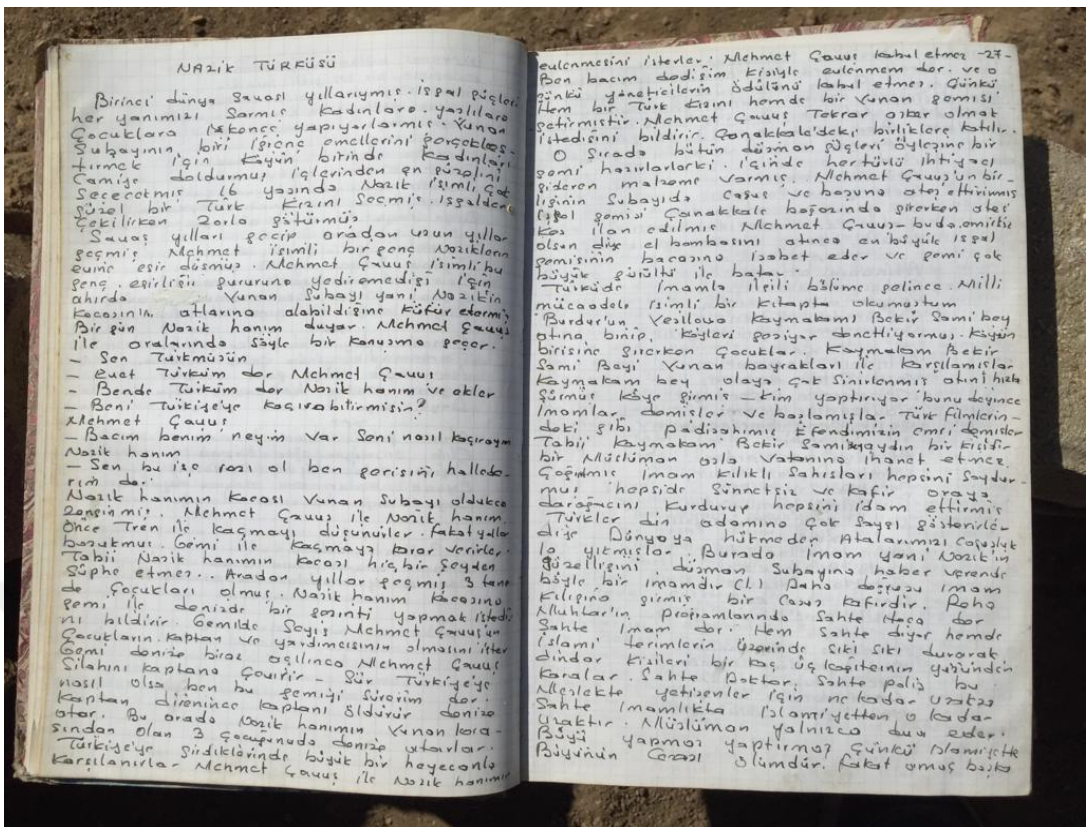 NAZİK TÜRKÜSÜ
Birinci dünya savası yıllarıymıs. İsgal güçleri
her yanımızı sarmıs kadınlara. yaslılara
Çocuklara iskence yapıyorlarmıs. Yunan
Subayının biri igrenç emellerini gerçekles-
tirmek için köyün birinde kadınları
Camiye doldurmus içlerinden en güzelini
Seçecekmis 16 yasında Nazik isimli çok
güzel bir Türk kızını seçmis. isgalden
Çekilirken zorla götürmüs
Savas yılları geçip aradan uzun yıllar
geçmis Mehmet isimli bir genç Naziklerin
evine esir düsmüs. Mehmet Çavus isimli bu
genç. esirligi gururuna yediremedigi için
ahırda Yunan Subayı yani Nazik'in
Kocasının atlarına alabildigine küfür edermis
Bir gün Nazik hanım duyar. Mehmet Çavus
ile aralarında söyle bir konusma geçer.
- Sen Türkmüsün
- Evet Türküm der Mehmet Çavus
- Bende Türküm der Nazik hanım ve ekler
- Beni Türkiye'ye kaçırabilirmisin?
Mehmet Çavus
- Bacım benim neyim var Seni nasıl kaçırayım
Nazik hanım
- Sen bu ise razı ol ben gerisini hallede-
rim der.
Nazik hanımın kocası Yunan subayı oldukca
Zenginmis. Mehmet Çavus ile Nazik hanım.
Önce Tren ile kaçmayı düsünürler. fakat yollar
bozukmus. Gemi ile kaçmaya karar verirler.
Tabii Nazik hanımın kocası hiçbir seyden
süphe etmez.. Aradan yıllar geçmis 3 tane
de çocukları olmus. Nazik hanım kocasına
gemi ile denizde bir gezinti yapmak istedigi-
ni bildirir. Gemide Seyis Mehmet Çavus'un
Çocukların. kaptan ve yardımcısının olmasını ister
Gemi denize biraz açılınca Mehmet Çavus
Silahını kaptana çevirir - Sür Türkiye'ye
nasıl olsa ben bu gemiyi sürerim der.
Kaptan direnince kaptanı öldürür denize
atar. Bu arada Nazik hanımın Yunan koca-
sından olan 3 çocugunuda denize atarlar.
Türkiye'ye girdiklerinde büyük bir heyecanla
karsılanırlar Mehmet Çavus ile Nazik hanımın
evlenmesini isterler. Mehmet Çavus kabul etmez -27-
Ben bacım dedigim kisiyle evlenmem der. ve o
günkü yöneticilerin ödülünü kabul etmez. Günkü
Hem bir Türk kızını hemde bir Yunan gemisi
getirmistir. Mehmet Çavus Tekrar asker olmak
istedigini bildirir. Çanakkale'deki birliklere katılır.
O sırada bütün düsman güçleri öylesine bir
gemi hazırlarlarki. içinde hertürlü ihtiyacı
gideren malzeme varmıs. Mehmet Çavus'un bir-
liginin Subayıda casus ve bosuna ates ettirirmis
isgal gemisi Çanakkale bogazında girerken ates
kes ilan edilmis Mehmet Çavus- buda
olsun diye el bombasını atınca en büyük isgal
gemisinin bacasına isabet eder ve gemi çok
büyük gürültü ile batar.
Türküde imamla ilgili bölüme gelince. Milli
mücaadele isimli bir kitapta okumustum
Burdur'un Yesilova Kaymakamı Bekir Sami bey
atına binip, köyleri geziyor denetliyormus. Köyün
birisine girerken Çocuklar. Kaymakam Bekir
Sami Beyi Yunan bayrakları ile karsılamıslar
Kaymakam bey olaya çok sinirlenmis atını hızla
sürmüs köye girmis - Kim yaptırıyor bunu deyince
imamlar demisler ve baslamıslar Türk filmlerin-
deki gibi padisahımız Efendimizin emri demisler
Tabii Kaymakam Bekir Sami aydın bir kisidir
bir Müslüman asla vatanına ihanet etmez.
Çagırmıs imam kılıklı sahısları hepsini soydur-
mus hepside sünnetsiz ve kafir oraya
daragacını kurdurup hepsini idam ettirmis
Türkler din adamına çok saygı gösterirler
diye Dünyaya hükmeden Atalarımızı casusluk
la yıkmıslar. Burada imam yani Nazik'in
güzelligini düsman subayına haber verende
böyle bir imamdır (!) Daha dogrusu imam
kılıgına girmis bir Casus kafirdir. Reha
Muhtar'ın programlarında Sahte Hoca der
Sahte imam der. Hem Sahte diyor hemde
islami terimlerin üzerinde sıkı sıkı durarak
dindar kisileri bir kaç üç kagitcinin yüzünden
karalar. Sahte Doktor, Sahte polis bu
Meslekte yetisenler için ne kadar uzaksa
Sahte imamlıkta islamiyetten o kadar
uzaktır. Müslüman yalnızca dua eder.
Büyü yapmaz yaptırmaz Çünkü islamiyette
Büyünün Cezası ölümdür. fakat baska